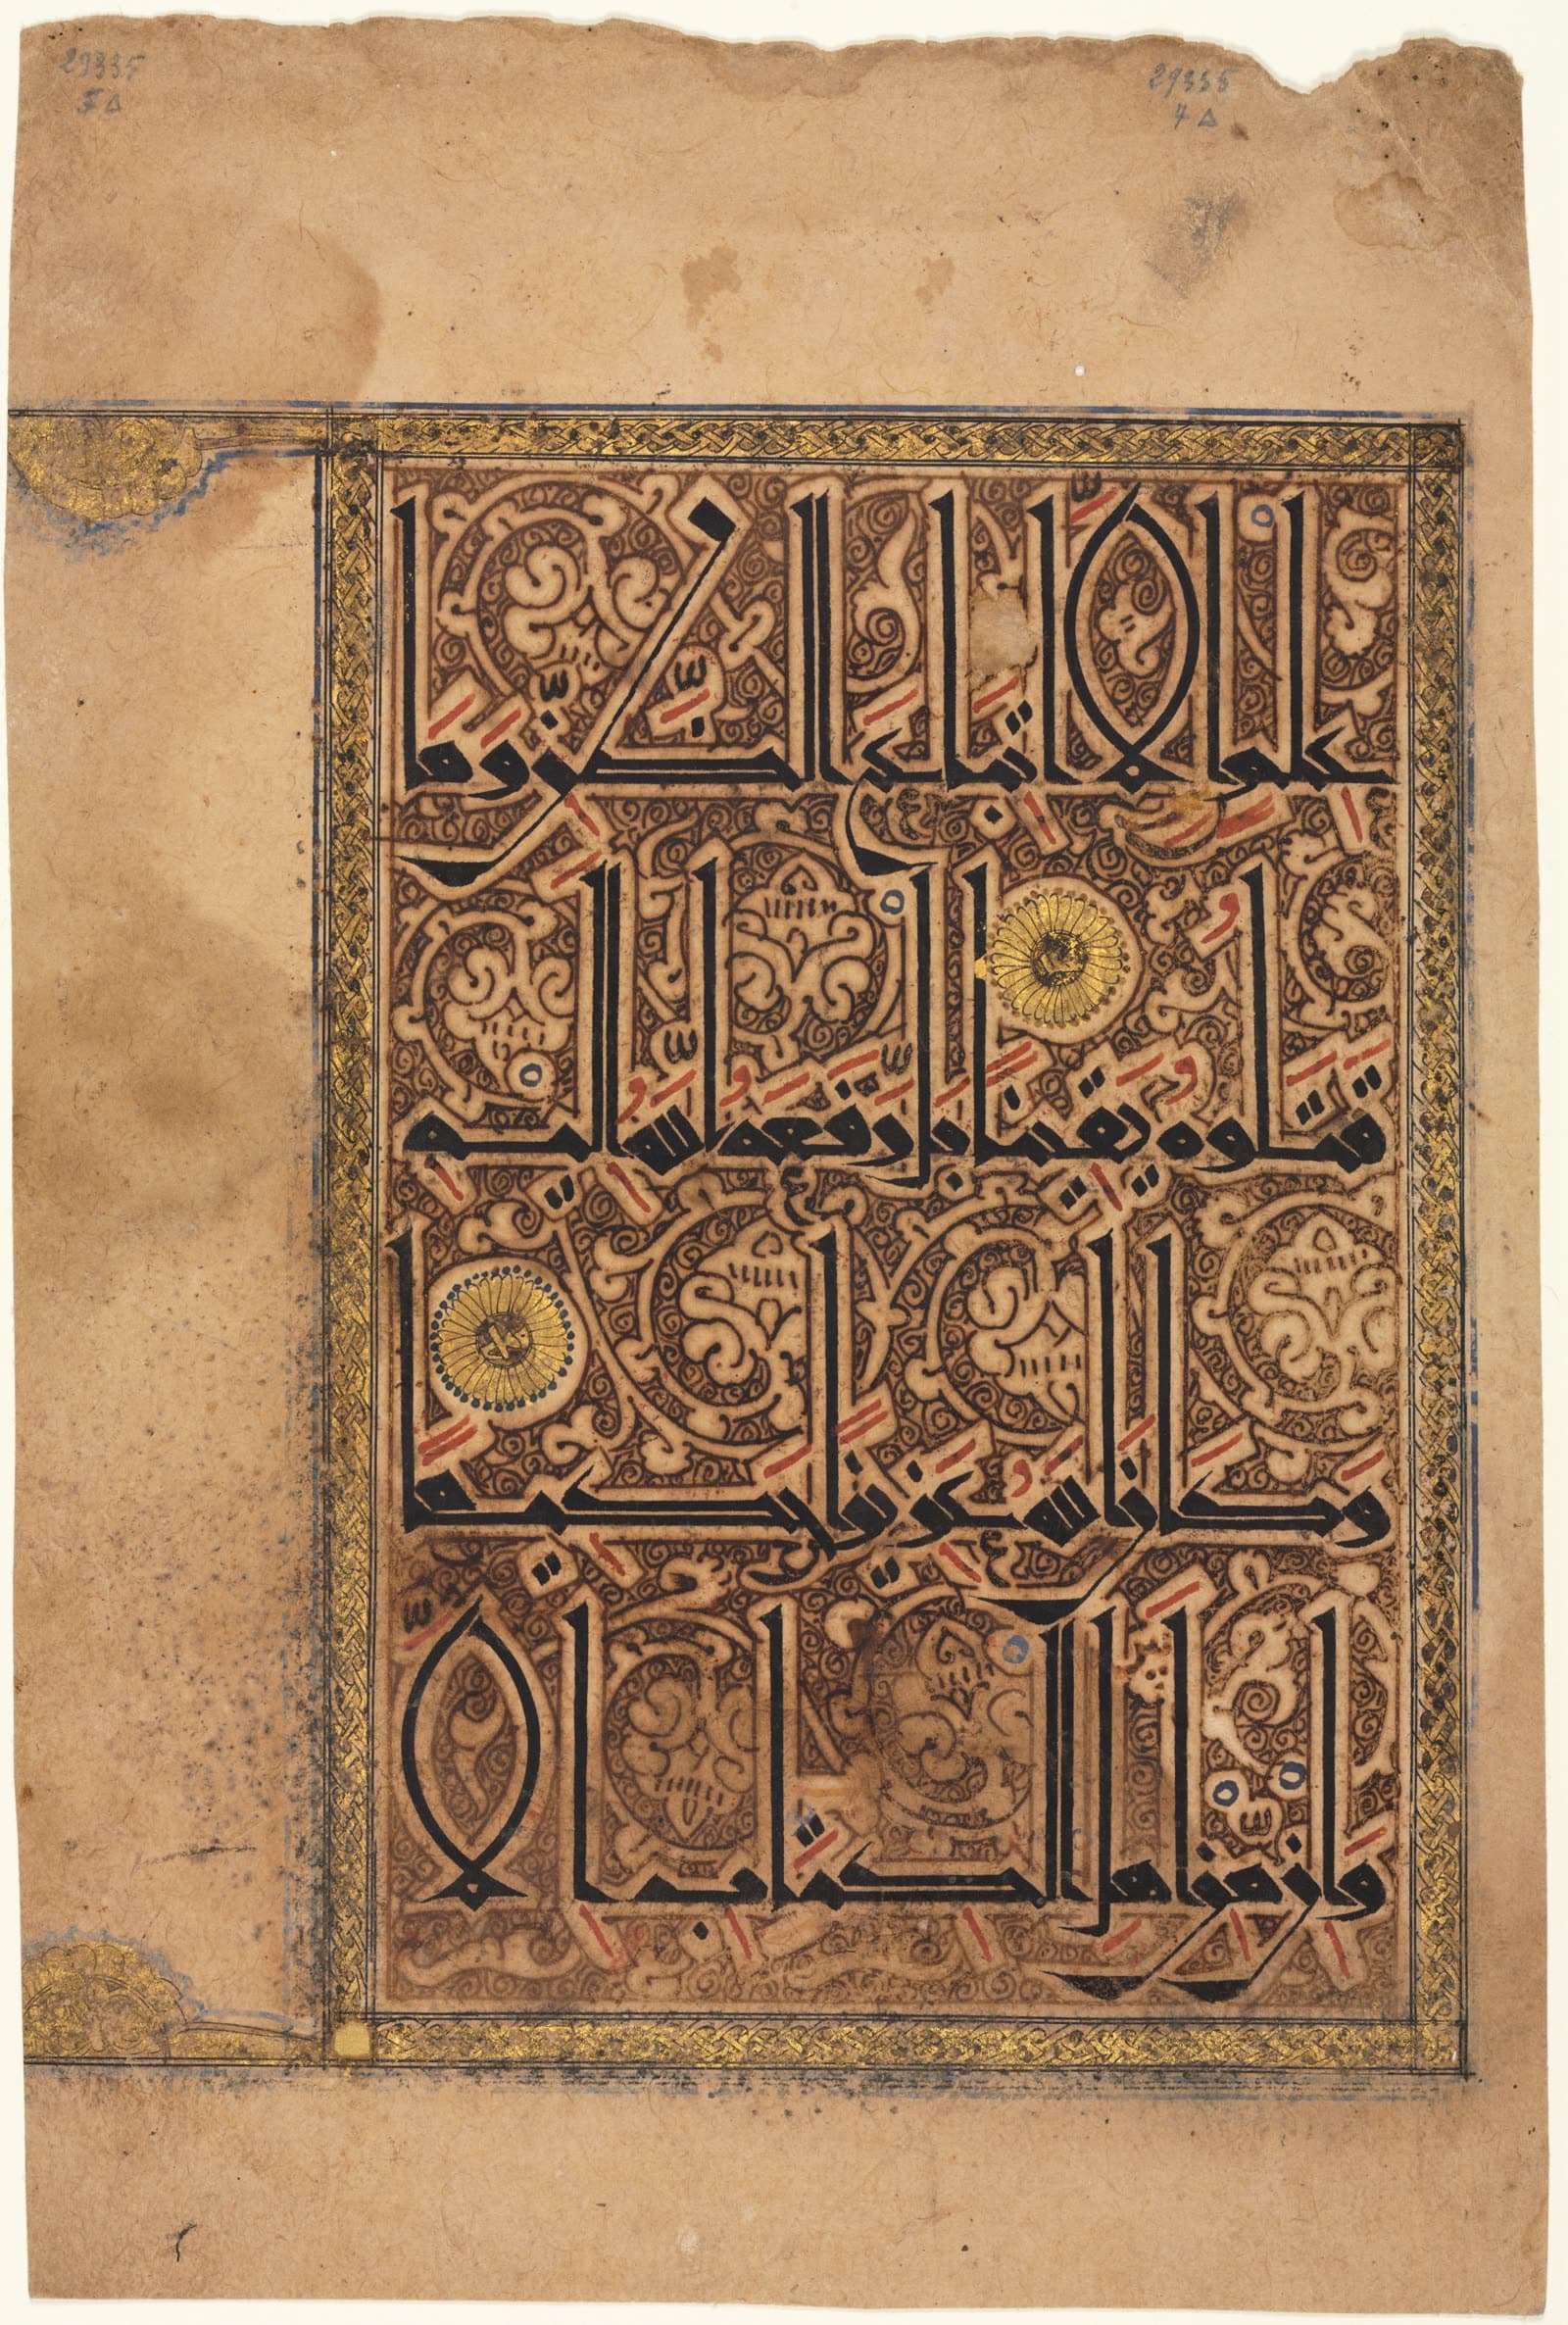 29335 29335
عِلْمٍ اِلَّا اتِّبَاعَ الظَّنِّ وَمَا
قَتَلُوهُ يَقِينًا بَلْ رَفَعَهُ اللَّهُ اِلَيْهِ
وَكَانَ اللَّهُ عَزِيزًا حَكِيمًا
وَاِنْ مِنْ اَهْلِ الْكِتَابِ اِلَّا